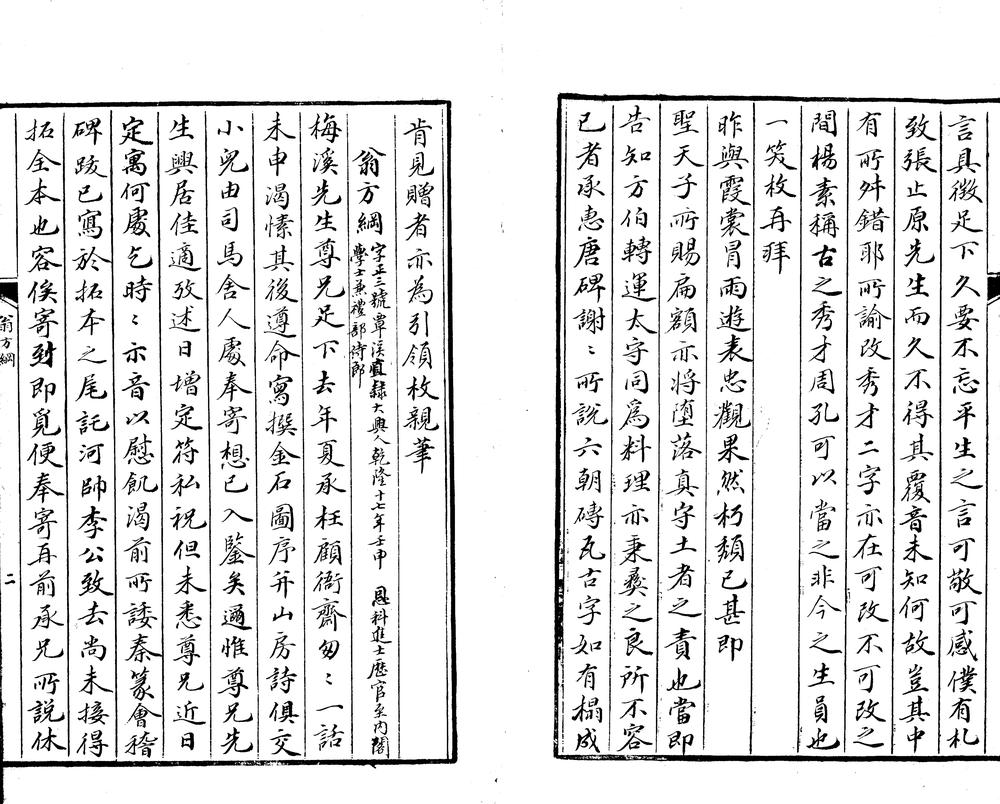 言具徵足下久要不忘平生之言可敬可感僕有札
致張止原先生而久不得其覆音未知何故豈其中
有所舛錯耶所諭改秀才二字亦在可改不可改之
間楊素稱古之秀才周孔可以當之非今之生員也
一笑枚再拜
昨與霞裳冒雨遊表忠觀果然朽頹已甚即
聖天子所賜扁額亦將墮落真守土者之責也當即
告知方伯轉運太守同爲料理亦秉彝之良所不容
已者承惠唐碑謝〻所說六朝磚瓦古字如有榻成
肯見贈者亦為引領枚親筆
翁方綱 字正三號覃溪直隸大興人乾隆十七年壬申 恩科進士歷官至內閣
學士兼禮部侍郎
梅溪先生尊兄足下去年夏承枉顧衙齋匆〻一話
未申渴愫其後遵命寫撰金石圖序并山房詩俱交
小兒由司馬舍人處奉寄想已入鑒矣邇惟尊兄先
生興居佳適攷述日增定符私祝但未悉尊兄近日
定寓何處乞時〻示音以慰飢渴前所諉秦篆會稽
碑跋已寫於拓本之尾託河帥李公致去尚未接得
拓全本也容俟寄到即覓便奉寄再前承兄所說休
翁方綱
二